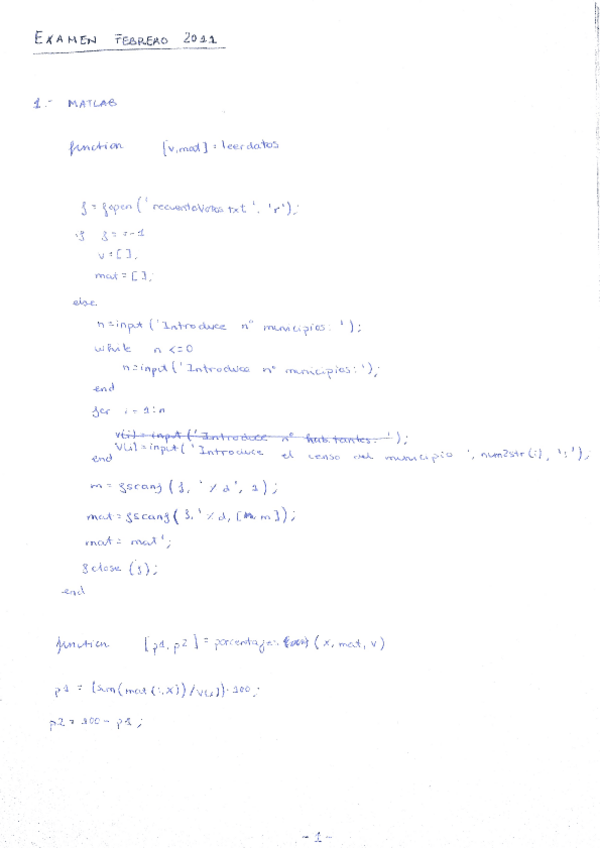 EXAMEN FEBRERO 2011
1.- MATLAB
function [v,mat] = leerdatos
f = fopen('recuentoVotos.txt', 'r');
if f == -1
v = [];
mat = [];
else
n = input('Introduce nº municipios: ');
while n <= 0
n = input('Introduce nº municipios: ');
end
for i = 1:n
v(i) = input('Introduce nº habitantes: ');
v(i) = input('Introduce el censo del municipio ', num2str(i), ':');
end
m = fscanf(f, '%d', 1);
mat = fscanf(f, '%d, [n, m]);
mat = mat';
fclose(f);
end
function [p1, p2] = porcentajes (x, mat, v)
p1 = (sum(mat(:,x))/v(x))·100;
p2 = 100 - p1;
- 1 -